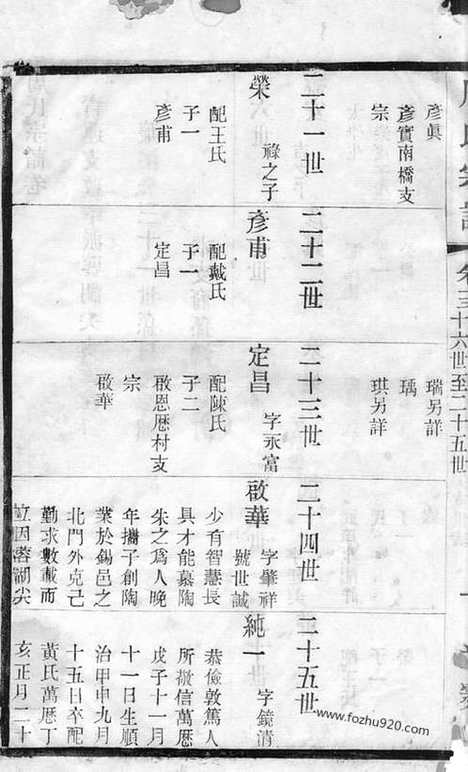 卷三十六世至二十五世
彥眞
彥實南橋支
宗
二十一世
榮 祿之子
配王氏
子一
彥甫
二十二世
彥甫
配戴氏
子一
定昌
瑞另詳
瑀
琪另詳
二十三世
定昌 字永富
配陳氏
子二
啟恩厯村支
宗
啟華
二十四世
啟華 字肇祥
號世誠
少有智慧長
具才能慕陶
朱之爲人晚
年攜子創陶
業於錫邑之
北門外克己
勤求數載而
立因蓉湖尖
二十五世
純一 字鏡清
恭儉敦篤人
所敬信萬厯
戊子十一月
十一日生順
治甲申九月
十五日卒配
黃氏萬厯丁
亥正月二十
www.fozhu920.com